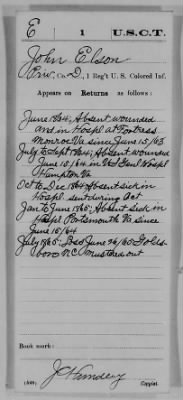 E 1 U.S.C.T.
John Elson
Priv., Co. D, 1 Reg't U. S. Colored Inf.
Appears on Returns as follows:
June 1864; Absent wounded
and in Hospl at Fortress
Monroe Va since June 15/63
July to Sept 1864; Absent wounded
June 15/64 in US Genl Hospl
Hampton Va
Oct to Dec 1864 Absent sick in
Hospl. sent during Oct
Jan to June 1865; Absent sick in
Hospl Portsmouth Va since
June 15/64
July 1865. June 26/65 Golds-
boro N.C. Mustered out
Book mark:
(546) Copyist.